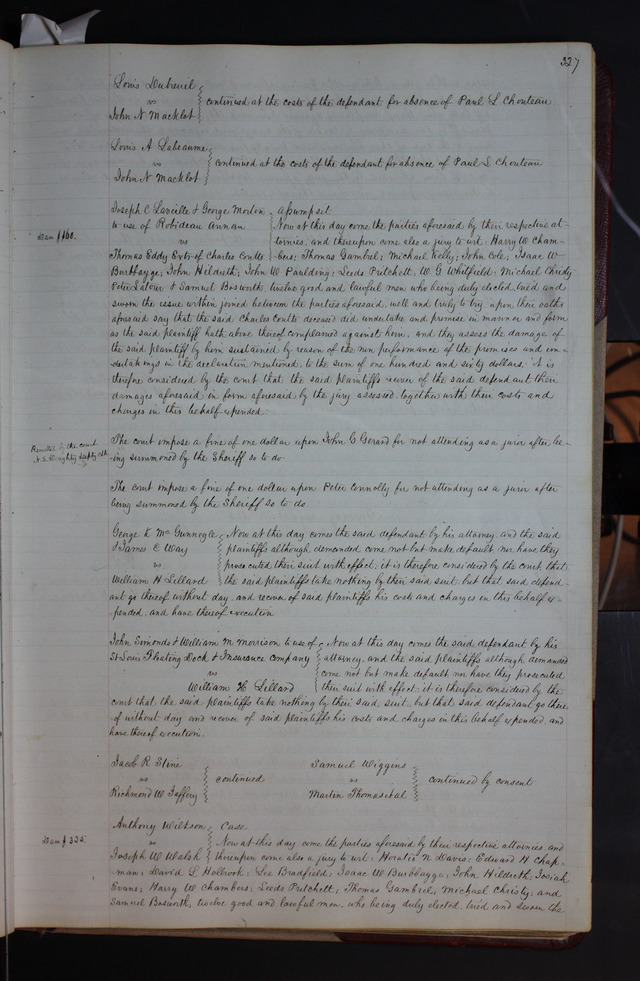 327
Louis Dubreuil
vs
John N Macklot
continued at the costs of the defendant for absence of Paul L Chouteau
Louis A Lebeaume
vs
John N Macklot
continued at the costs of the defendant for absence of Paul L Chouteau
Joseph C Laveille & George Morton assumpsit
to use of Robideau Annan Now at this day come the parties aforesaid by their respective at-
Dam $160.
vs tornies, and thereupon come also a jury to wit: Harry W Cham-
Thomas Eddy Extr of Charles Coults bers; Thomas Gambrel; Michael Kelly; John Cole; Isaac W
Burbbayge; John Hildreth; John W Paulding; Leeds Putchett; W. G Whitfield; Michael Christy
Peter Latour & Samuel Bosworth twelve good and lawful men who being duly elected, tried and
sworn the issue within joined between the parties aforesaid, well and truly to try, upon their oaths
aforesaid say that the said Charles Coults deceased did undertake and promise in manner and form
as the said plaintiff hath above thereof complained against him, and they assess the damage of
the said plaintiff by him sustained by reason of the non performance of the promises and un-
dertakings in the declaration mentioned to the sum of one hundred and sixty dollars, it is
therefore considered by the court that the said plaintiffs recover of the said defendant their
damages aforesaid in form aforesaid by the jury assessed together with their costs and
charges in this behalf expended.
Remitted by the court
The court impose a fine of one dollar upon John C Gerard for not attending as a juror after be-
ing summoned by the Sheriff so to do
The court impose a fine of one dollar upon Peter Connolly for not attending as a juror after
being summoned by the Sheriff so to do
George K McGunnegle Now at this day comes the said defendant by his attorney, and the said
& James E Way plaintiffs although demanded come not but make default, nor have they
vs prosecuted their suit with effect, it is therefore considered by the court, that
William H Lillard the said plaintiffs take nothing by their said suit, but that said defend-
ant go thereof without day, and recover of said plaintiffs his costs and charges in this behalf ex-
pended, and have thereof execution
John Simonds & William M Morrison to use of Now at this day comes the said defendant by his
St Louis Floating Dock & Insurance company attorney, and the said plaintiffs although demanded
vs come not but make default nor have they prosecuted
William H Lillard their suit with effect, it is therefore considered by the
court that the said plaintiffs take nothing by their said suit, but that said defendant go there-
of without day and recover of said plaintiffs his costs and charges in this behalf expended and
have thereof execution.
Jacob R Stine
vs
Richmond W Jaffery
continued
Samuel Wiggins
vs
Martin Thomas et al
continued by consent
Anthony Wiltson Case
Dam $335.
vs Now at this day come the parties aforesaid by their respective attornies, and
Joseph W Walsh thereupon come also a jury to wit: Horatio N Davis; Edward H Chap-
man; David L Holbrook; Lee Bradfield; Isaac W Burbbayge; John Hildreth; Josiah
Evans; Harry W Chambers; Leeds Putchett; Thomas Gambrel; Michael Christy; and
Samuel Bosworth, twelve good and lawful men, who being duly elected, tried and sworn the